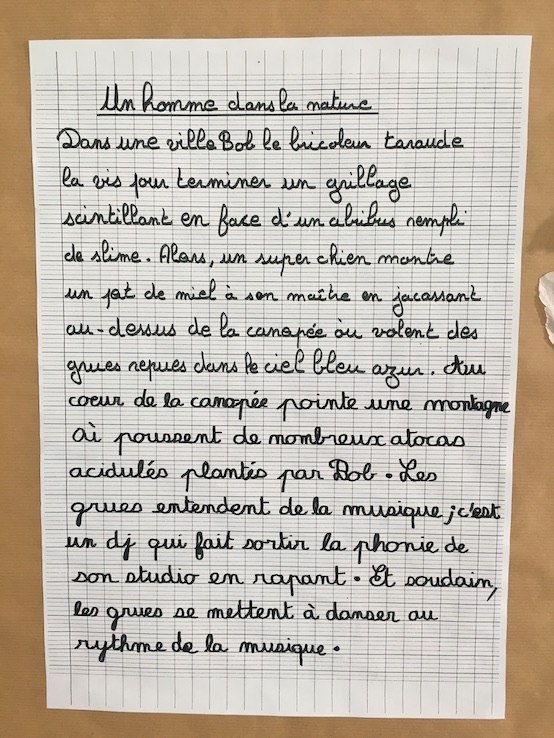 Un homme dans la nature
Dans une ville Bob le bricoleur taraude
la vis pour terminer un grillage
scintillant en face d'un abribus rempli
de slime. Alors, un super chien montre
un pot de miel à son maître en jacassant
au-dessus de la canopée où volent des
grues repues dans le ciel bleu azur. Au
coeur de la canopée pointe une montagne
où poussent de nombreux atocas
acidulés plantés par Bob. Les
grues entendent de la musique ; c'est
un dj qui fait sortir la phonie de
son studio en rapant. Et soudain,
les grues se mettent à danser au
rythme de la musique.